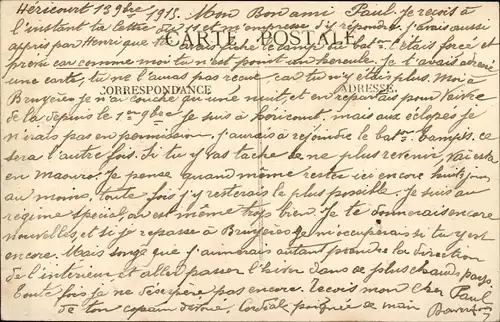 Héricourt 13 9bre 1915. Mon Bon ami Paul. Je reçois à
l'instant ta lettre du et m'empresse d'y répondre. J'avais aussi
appris par Henrique que tu avais fiché le camp du bat.on. C'était forcé et
prévu car comme moi tu n'est point un hercule. Je t'avais adressé
une carte, tu ne l'auras pas reçue, car tu n'y étais plus. Moi à
Bruyères je n'ai couché qu'une nuit, et en repartais pour
CARTE POSTALE
CORRESPONDANCE
ADRESSE
de là depuis le 1er 9bre je suis à Héricourt, mais aux éclopés je
n'irais pas en permission, j'aurais à rejoindre le bat.on Ce
sera l'autre fois. Si tu y vas tache de ne plus revenir, vas
en Je pense quand même rester ici encore huit jours,
au moins, toute fois j'y resterais le plus possible. Je suis au
régime spécial, on est même trop bien. Je te donnerais encore
nouvelles, et si je repasse à Bruyères je m'occuperais si tu y est
encore. Mais songe que j'aimerais autant prendre la direction
de l'intérieur et aller passer l'hiver dans de plus chauds pays.
Toute fois je ne désespère pas encore. Reçois mon cher Paul
de ton copain dévoué, Cordiale poignée de main